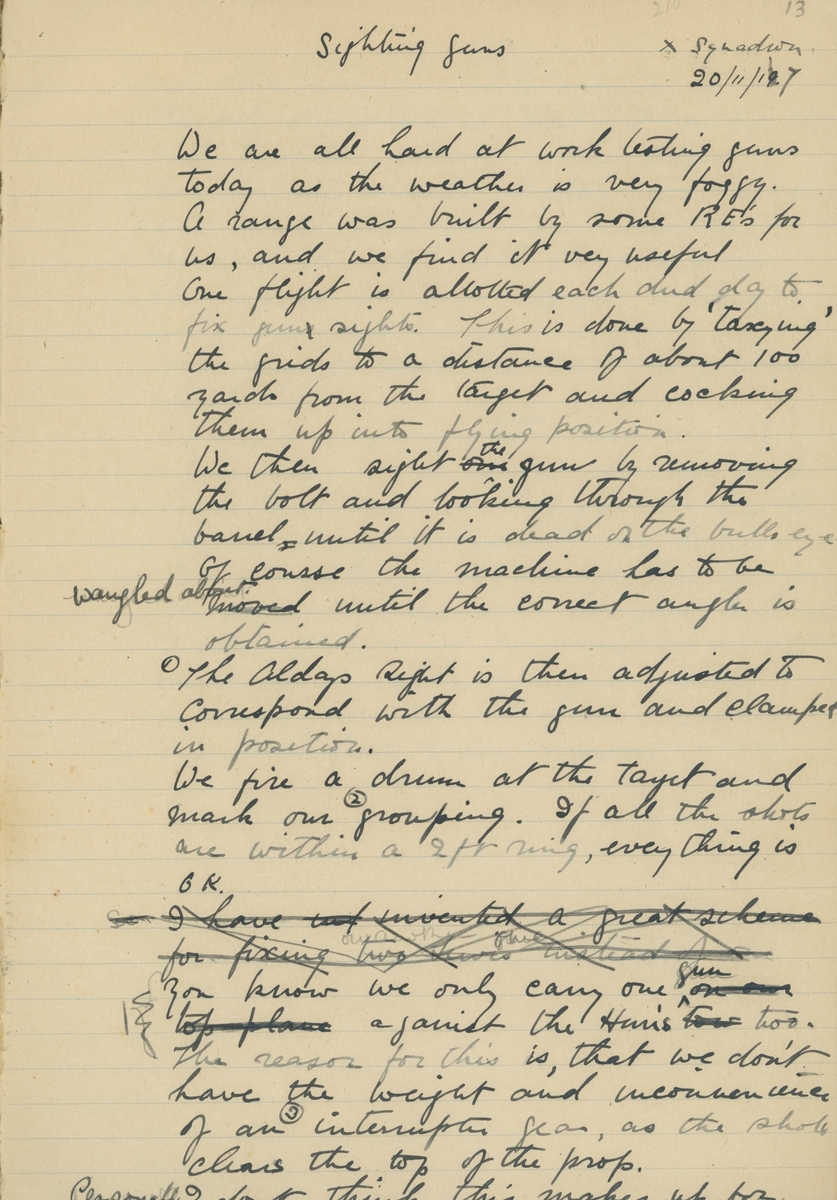 13
Sighting guns
x Squadron
20/11/17
We are all hard at work testing guns
today as the weather is very foggy.
A range was built by some RE's for
us, and we find it very useful
One flight is allotted each dud day to
fix guns sights. This is done by 'taxying'
the grids to a distance of about 100
yards from the target and cocking
them up into flying position.
We then sight the gun by removing
the bolt and looking through the
barrel, until it is dead on the bulls eye
Of course the machine has to be
wangled about
moved until the correct angle is
obtained.
① The Aldays sight is then adjusted to
correspond with the gun and clamped
in position.
We fire a drum at the target and
mark our ② grouping. If all the shots
are within a 2 ft ring, everything is
OK.
I have invented a great scheme
for fixing two instead of
You know we only carry one gun on our
top plane against the Huns two too.
The reason for this is, that we don't
have the weight and inconvenience
of an ③ interrupter gear, as the shots
clears the top of the prop.
Personally I don't think this makes up for